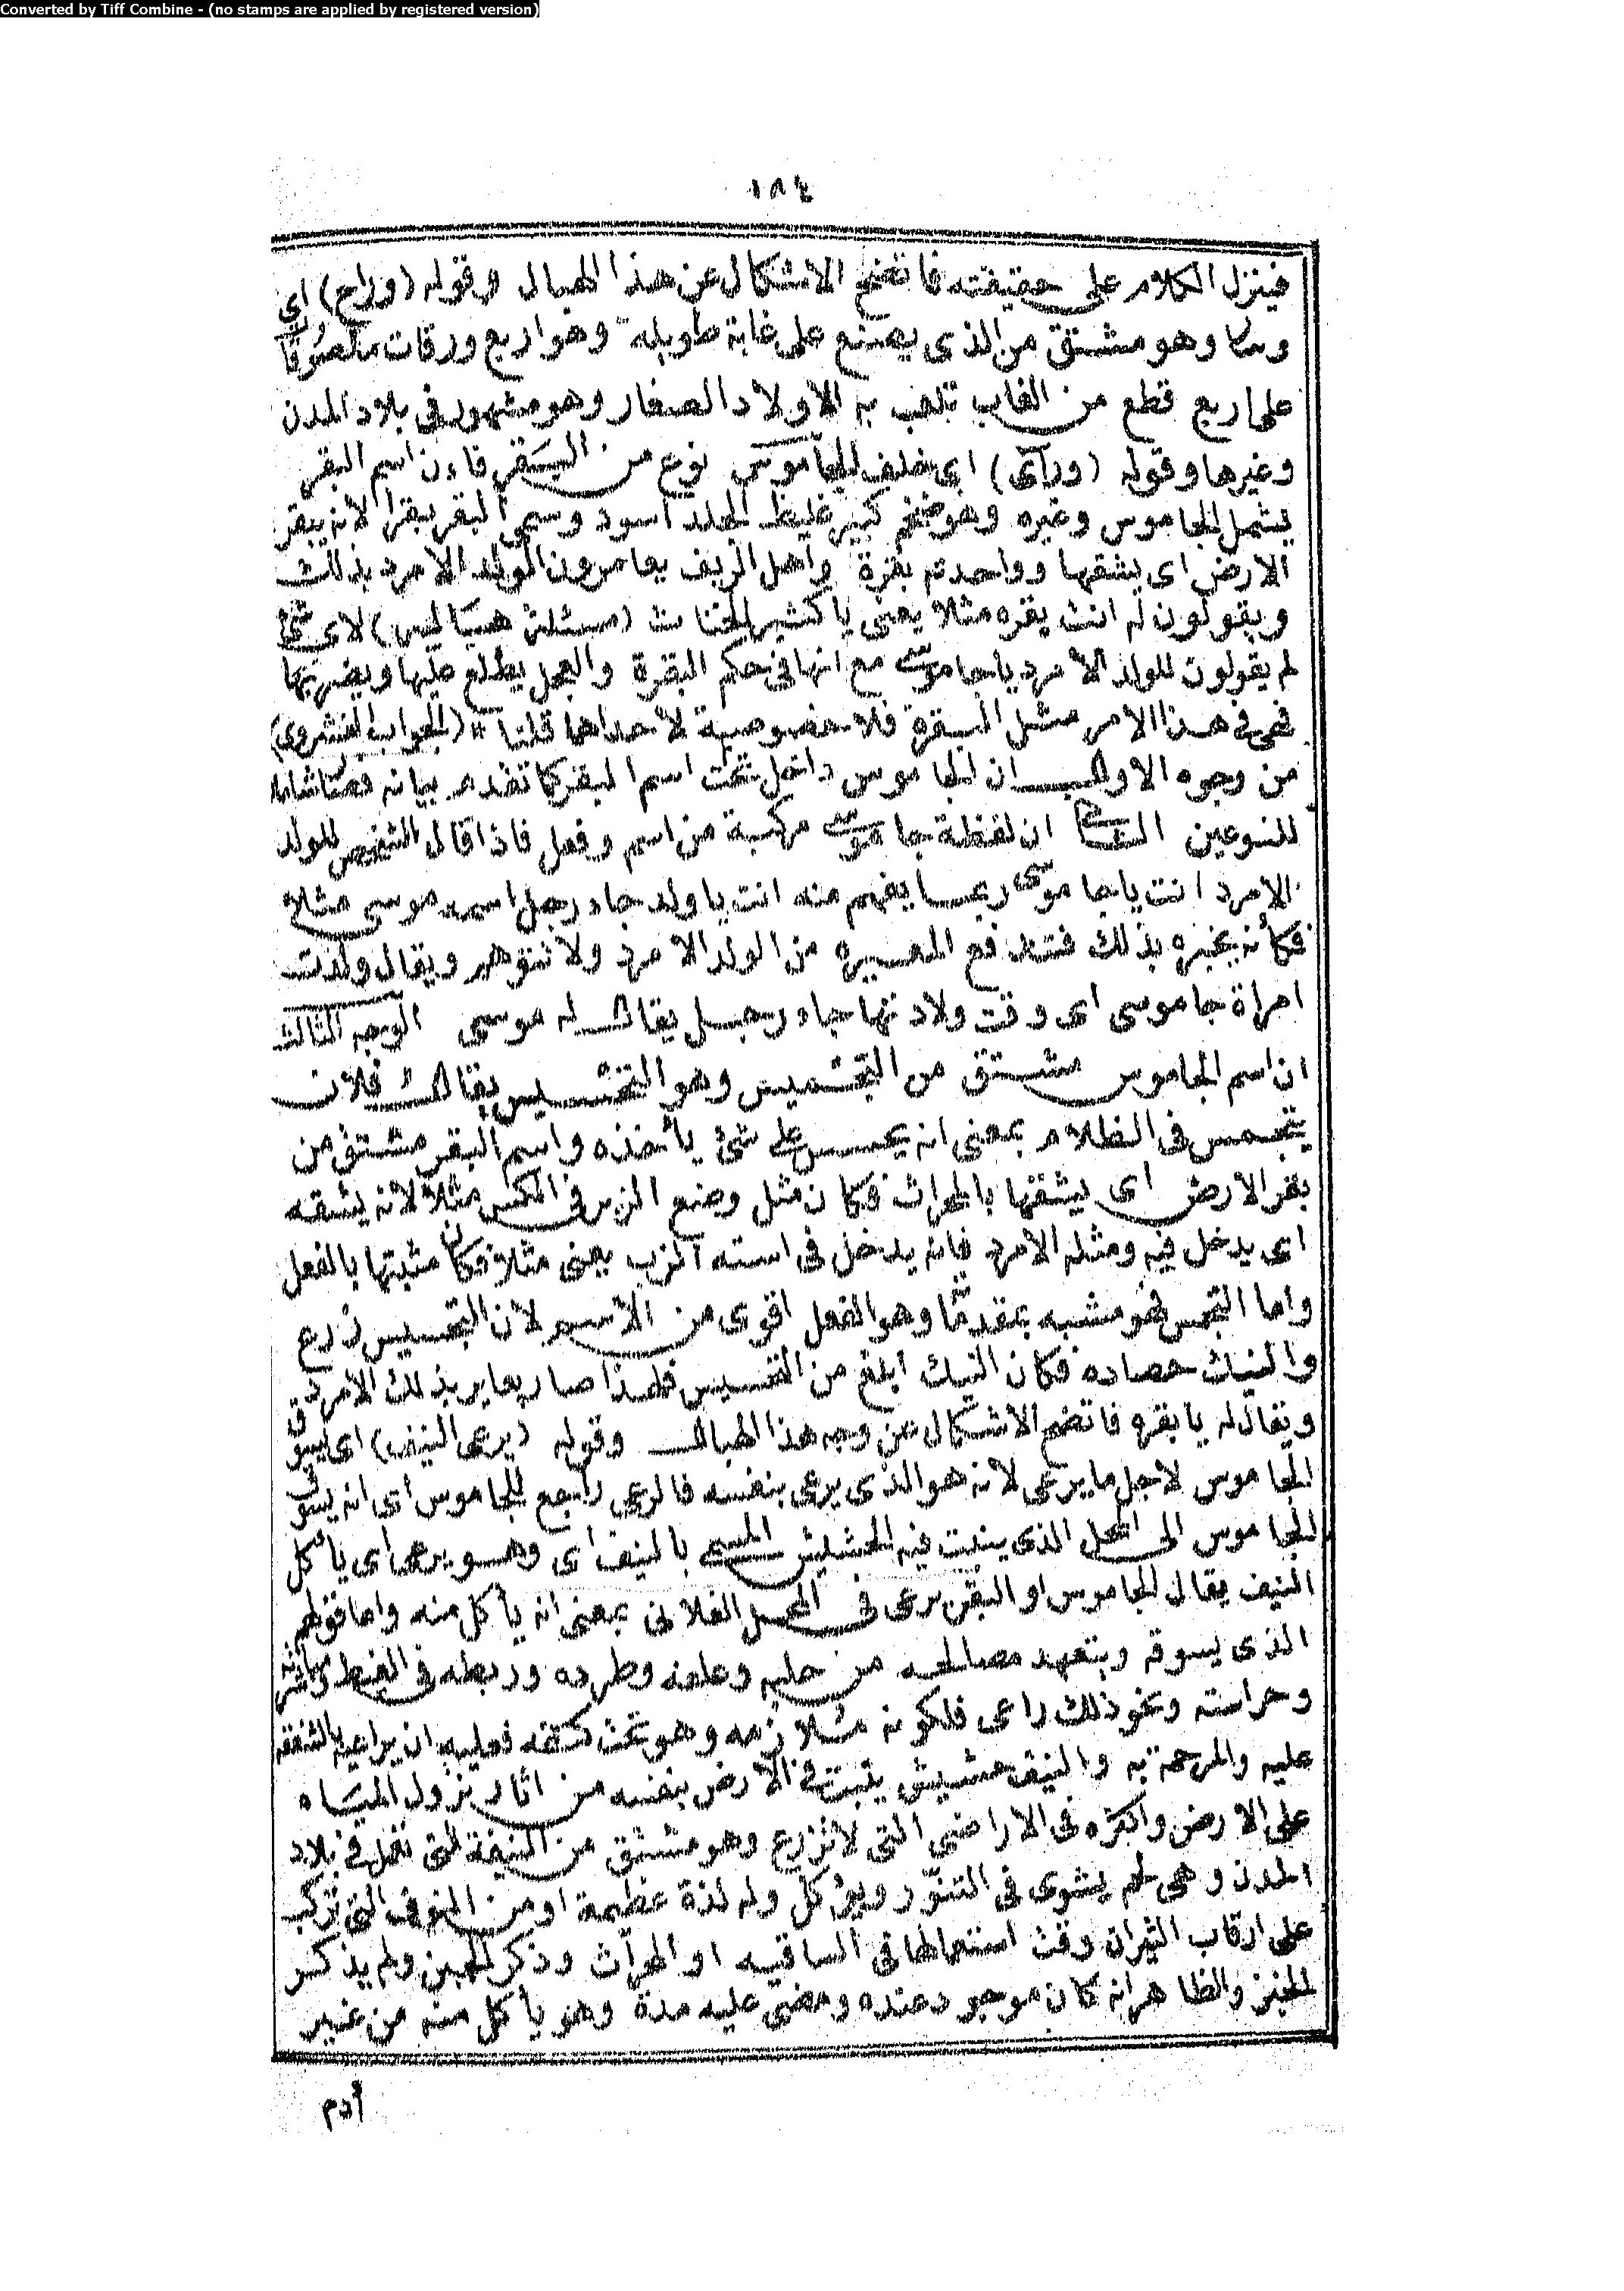 Converted by Tiff Combine - (no stamps are applied by registered version)
١٨٤
فينزل الكلام على حقيقته فاتضح الاشكال عن هذا الهبال وقوله (وراح) اى
وهو مشتق من الذى يصنع على غابة طويله وهو اربع ورقات ملصوقات
على اربع قطع من الغاب تلعب به الاولاد الصغار وهو مشهور فى بلاد المدن
وغيرها وقوله (وراى) اى خلف الجاموس نوع من البقر فاءن اسم البقر
يشمل الجاموس وغيره وهو ضخم كبير غليظ الجلد اسود وسمى البقر بقرا لانه يبقر
الارض اى يشقها وواحدته بقرة واهل الريف يعايرون الولد الامرد بذلك
ويقولون له انت بقره مثلا يعنى يا كثير الخناث (مسئلة هباليه) لاى شئ
لم يقولون للولد الامرد يا جاموسى مع انها فى حكم البقرة والعجل يطلع عليها ويضربها
فهى فى هذا الامر مثل البقرة فلا خصوصية لاحداهما قلنا (الجواب الفشروى)
من وجوه الاول ان الجاموس داخل تحت اسم البقر كما تقدم بيانه فصار شاملا
للنوعين الثانى ان لفظة جاموسى مركبة من اسم وفعل فاذا قال الشخص للولد
الامرد انت يا جاموسى ربما يفهم منه انت يا ولد جاء رجل اسمه موسى مثلا
فكأنه يخبره بذلك فتندفع المعيره من الولد الامرد ولا تتوهم ويقال ولدت
امراة جاموسى اى وقت ولادتها جاء رجل يقال له موسى الوجه الثالث
ان اسم الجاموس مشتق من التجميس وهو التحسيس يقال فلان
يتجمس فى الظلام بمعنى انه يحسس على شئ يأخذه واسم البقر مشتق من
بقر الارض اى يشقها بالمحراث فكان مثل وضع الزب فى الكس مثلا لانه يشقه
اى يدخل فيه ومثله الامرد فانه يدخل فى استه الزب يعنى مثلا فكان مثبتها بالفعل
واما التجمس فهو مشبه بمقدمتا وهو الفعل اقوى من الاسم لان التجسيس زرع
والنيك حصاده فكان النيك ابلغ من التحسيس فلهذا صار يعاير بذلك الامرد
ويقال له يا بقره فاتضح الاشكال عن وجه هذا الهبال وقوله (يرعى النيف) اى يسوق
الجاموس لاجل ما يرعى لانه هو الذى يرعى بنفسه فالرعى راجع للجاموس اى انه يسوق
الجاموس الى المحل الذى ينبت فيه الحشيش المسمى بالنيف اى وهو يرعى اى يأكل
النيف يقال الجاموس او البقر يرعى فى المحل الفلانى بمعنى انه يأكل منه واما قولهم
الذى يسوقه ويتعهد مصالحه من حلبه وعلفه وطرده وربطه فى الغيط
وحراسته ونحو ذلك راعى فلكونه ملازمه وهو تحت كنفه فعليه ان يراعيه بالشفقه
عليه والمرحمة به والنيف حشيش ينبت فى الارض بنفسه من اثار نزول المياه
على الارض واكثره فى الاراضى التى لا تزرع وهو مشتق من النيفة التى تعمل فى بلاد
المدن وهى لحم يشوى فى التنور ويؤكل وله لذة عظيمة او من النوف التى تركب
على ارقاب الثيران وقت استعمالها فى الساقيه او المحراث وذكر الجبن ولم يذكر
الخبز والظاهر انه كان موجود عنده ومضى عليه مدة وهو يأكل منه من غير
أدم